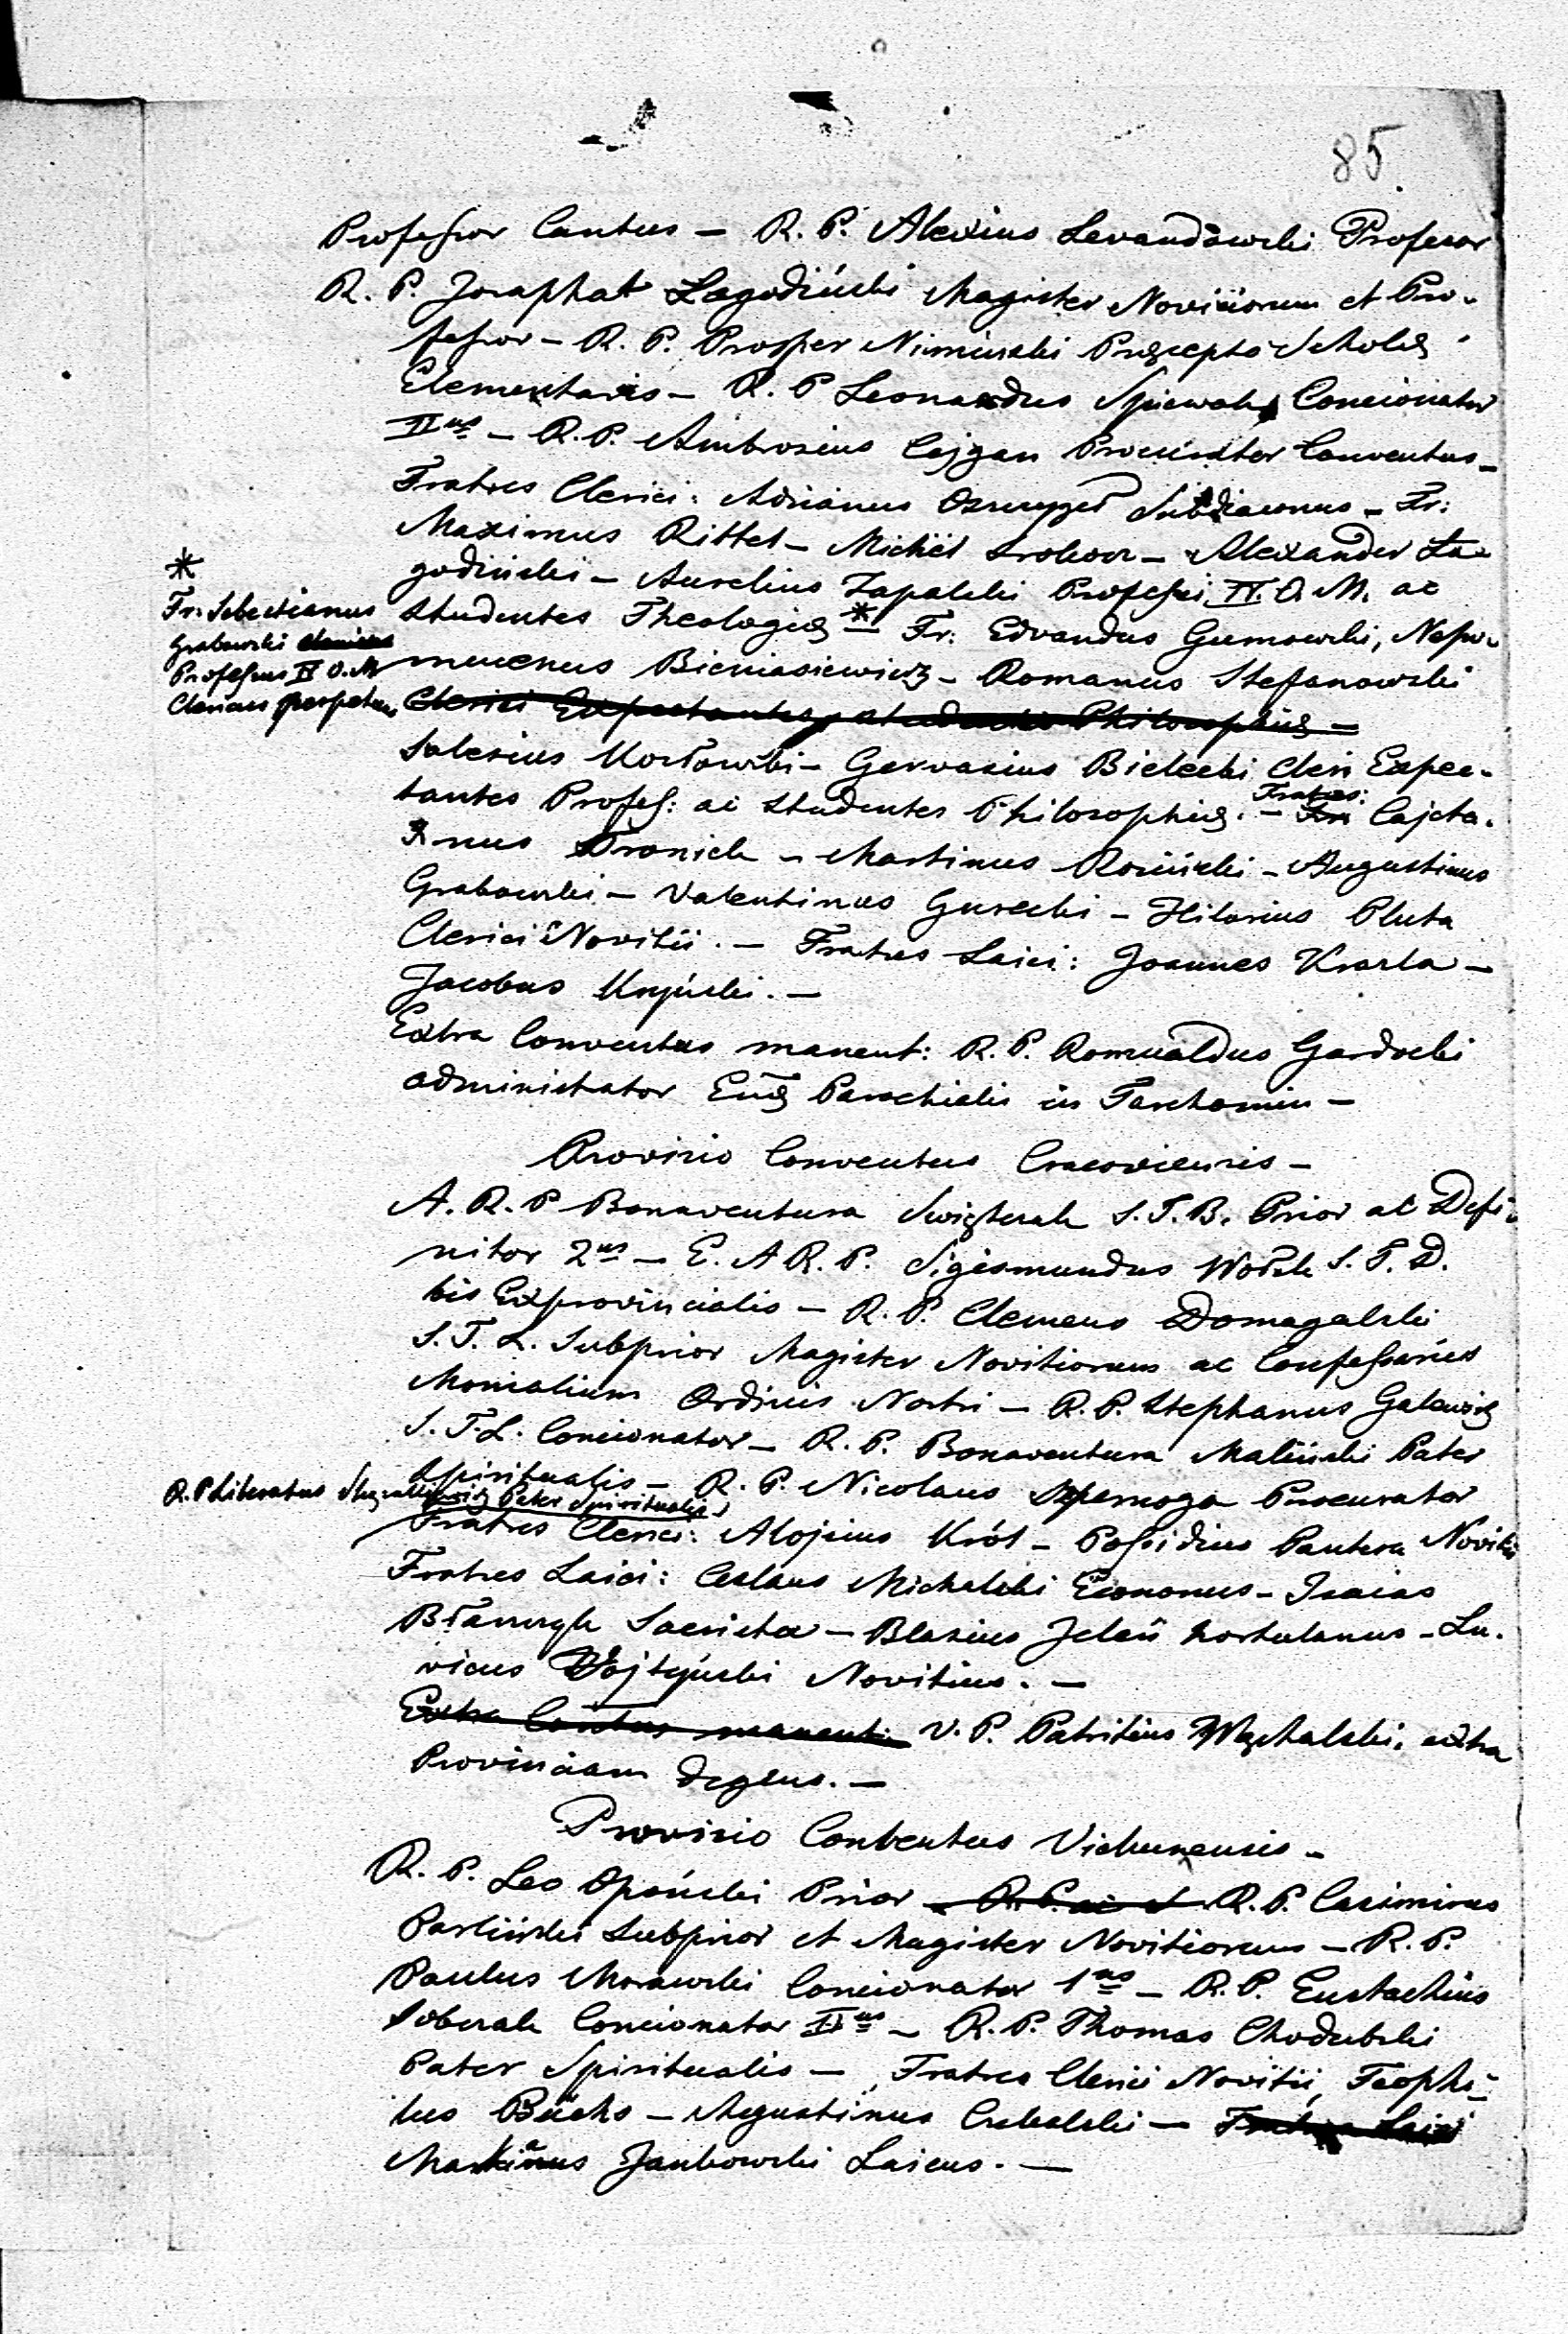 85.
Professor Cantus — R. P. Alexius Levandowski Profesor
R. P. Josaphat Łagodiński Magister Noviciorum et Pro-
fessor — R. P. Prosper Nimiński Præcepto Scholæ
Elementaris — R. P Leonardus Spiewak Concionator
IIus — R. P. Ambrosius Cajgan Procurator Conventus —
Fratres Clerici: Adrianus Subdiaconus — Fr:
Maximus Rittel — Michæl — Alexander Ła-
godiński — Aurelius Zapalski Professi IV. O. M. ac
Studentes Theologiæ * — Fr: Edvardus Gumowski, Nepo-
* Fr: Sebastianus
Grabowski Clericus
Professus IV O. M
Clericus perpetuus
mucenus Bieniasiewicz — Romanus Stefanowski
Clerici Expectantes, studentes Philosophiæ —
Salesius Kozłowski — Gervasius Bielecki Cleri Expec-
tantes Profes: ac Studentes Philosophiæ. — Fratres: Cajeta-
nus Dronick — Martinus Rosiński — Augustinus
Grabowski — Valentinus Gurecki — Hilarius Pluta
Clerici Novitii. — Fratres Laici: Joannes Kraska —
Jacobus .—
Extra Conventus manent: R. P. Romualdus Gardocki
administrator Eccłæ Parochialis in Tarchomin —
Provisio Conventus Cracoviensis —
A. R. P Bonaventura Swięterek S. T. B. Prior ac Defi-
nitor 2us — E. A R. P. Sigismundus Wołek S. T. D.
bis Exprovincialis — R. P. Clemens Domagalski
S. T. L. Subprior Magister Novitiorum ac Confessarius
Monialium Ordinis Nostri — R. P. Stephanus Galewicz
S. T. L. Concionator — R. P. Bonaventura Maliński Pater
Spiritualis — R. P. Nicolaus Szpernoga Procurator
R. P. Liberatus Pater Spiritualis
Fratres Clerici: Alojsius Król — Possidius Pantera Novitii
Fratres Laici: Ceslaus Michalski Economus — Isaias
Sacrista — Blasius Jeleń hortulanus — Lu-
vicus Wojtyński Novitius. —
Extra Contus manent: V. P. Patritius Męchalski, extra
Provinciam degens. —
Provisio Conventus Viehunensis —
R. P. Leo Opoński Prior — R. P. ac et R. P. Casimirus
Parliński Subprior et Magister Novitiorum — R. P.
Paulus Morawski Concionator 1us — R. P. Eustachius
Soberak Concionator IIus — R. P. Thomas Chodubski
Pater Spiritualis — Fratres Clerici Novitii, Teophi-
lus Bucho — Agustinus Cukalski — Fratres Laici
Jankowski Laicus. —